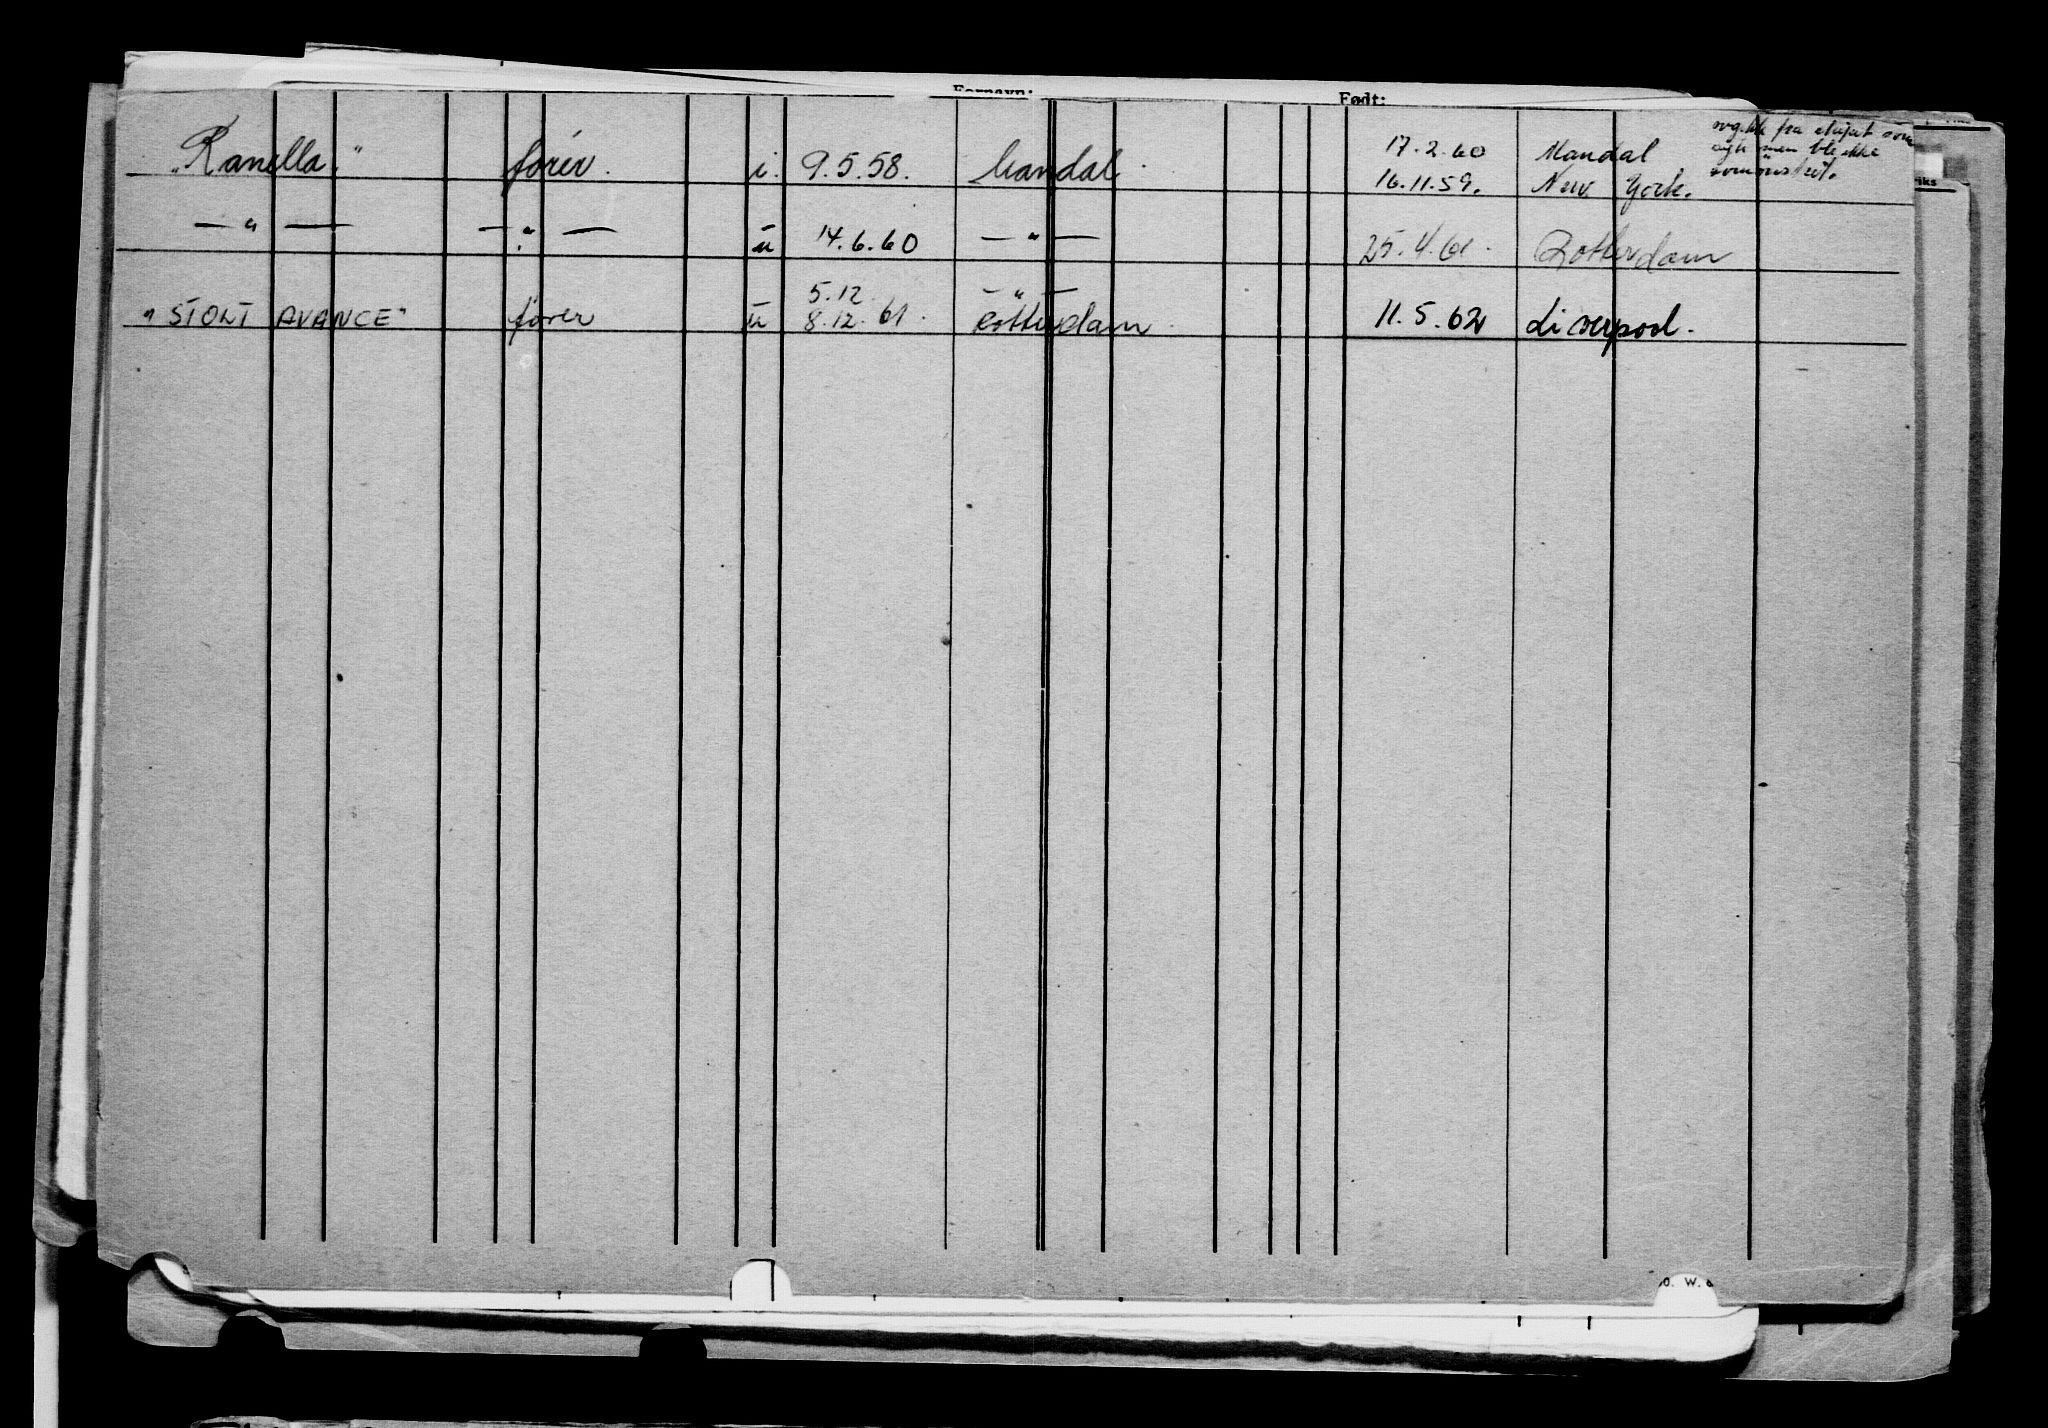 Fornavn: Født:
"Ranella." fører. i. 9.5.58. Mandal. 17.2.60 Mandal
16.11.59. New York.
fra skipet som
men ble ikke
— " — — " — u 14.6.60 — " — 25.4.61. Rotterdam
5.12 — " —
"STOLT AVANCE" fører u 8.12.61. Rotterdam. 11.5.62 Liverpool.
O. W.